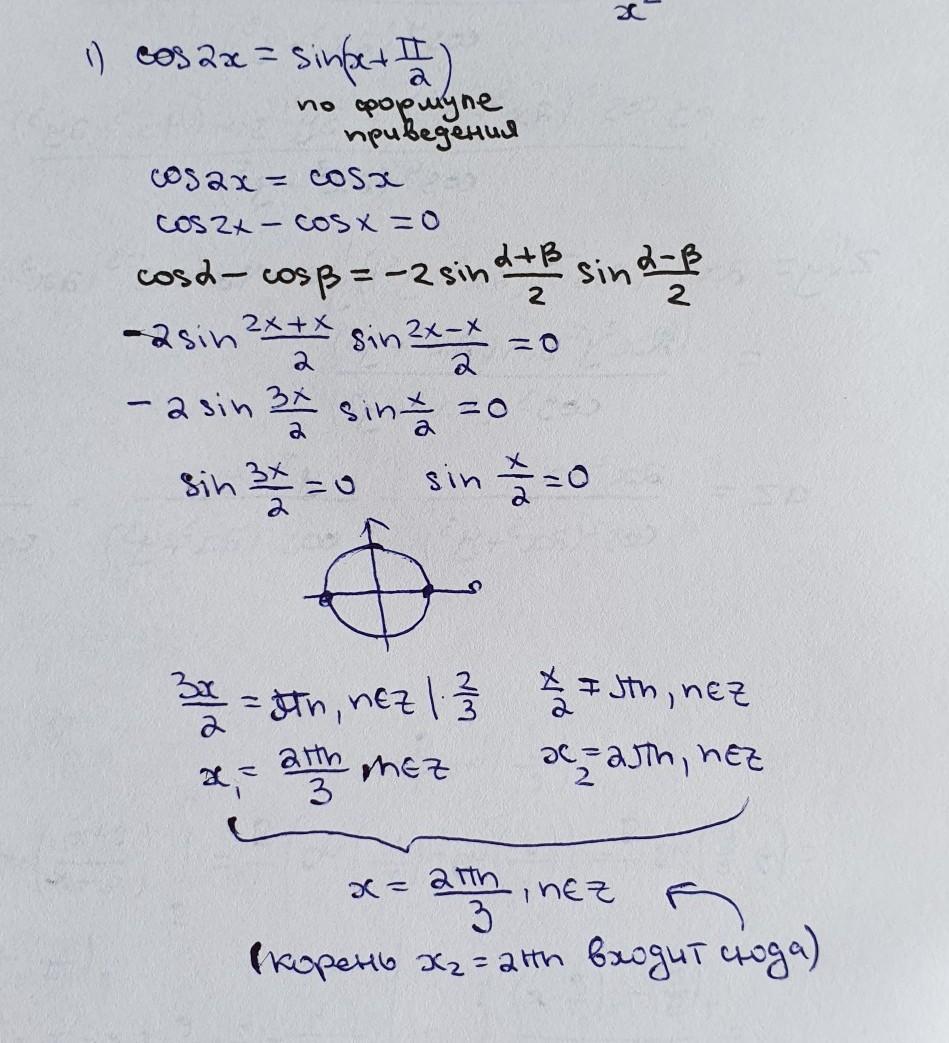 x²
1) cos2x = sin(x + π/2)
по формуле
приведения
cos2x = cosx
cos2x − cosx = 0
cosα − cosβ = −2 sin (α+β)/2 sin (α−β)/2
−2 sin (2x+x)/2 sin (2x−x)/2 = 0
−2 sin 3x/2 sin x/2 = 0
sin 3x/2 = 0 sin x/2 = 0
3x/2 = πn, n∈Z | · 2/3 x/2 = πn, n∈Z
x₁ = 2πn/3 n∈Z x₂ = 2πn, n∈Z
x = 2πn/3, n∈Z
(корень x₂ = 2πn входит сюда)